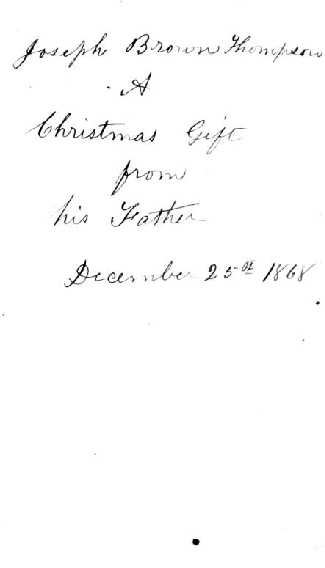 Joseph Brown Thompson
A
Christmas Gift
from
his Father
December 25th 1868